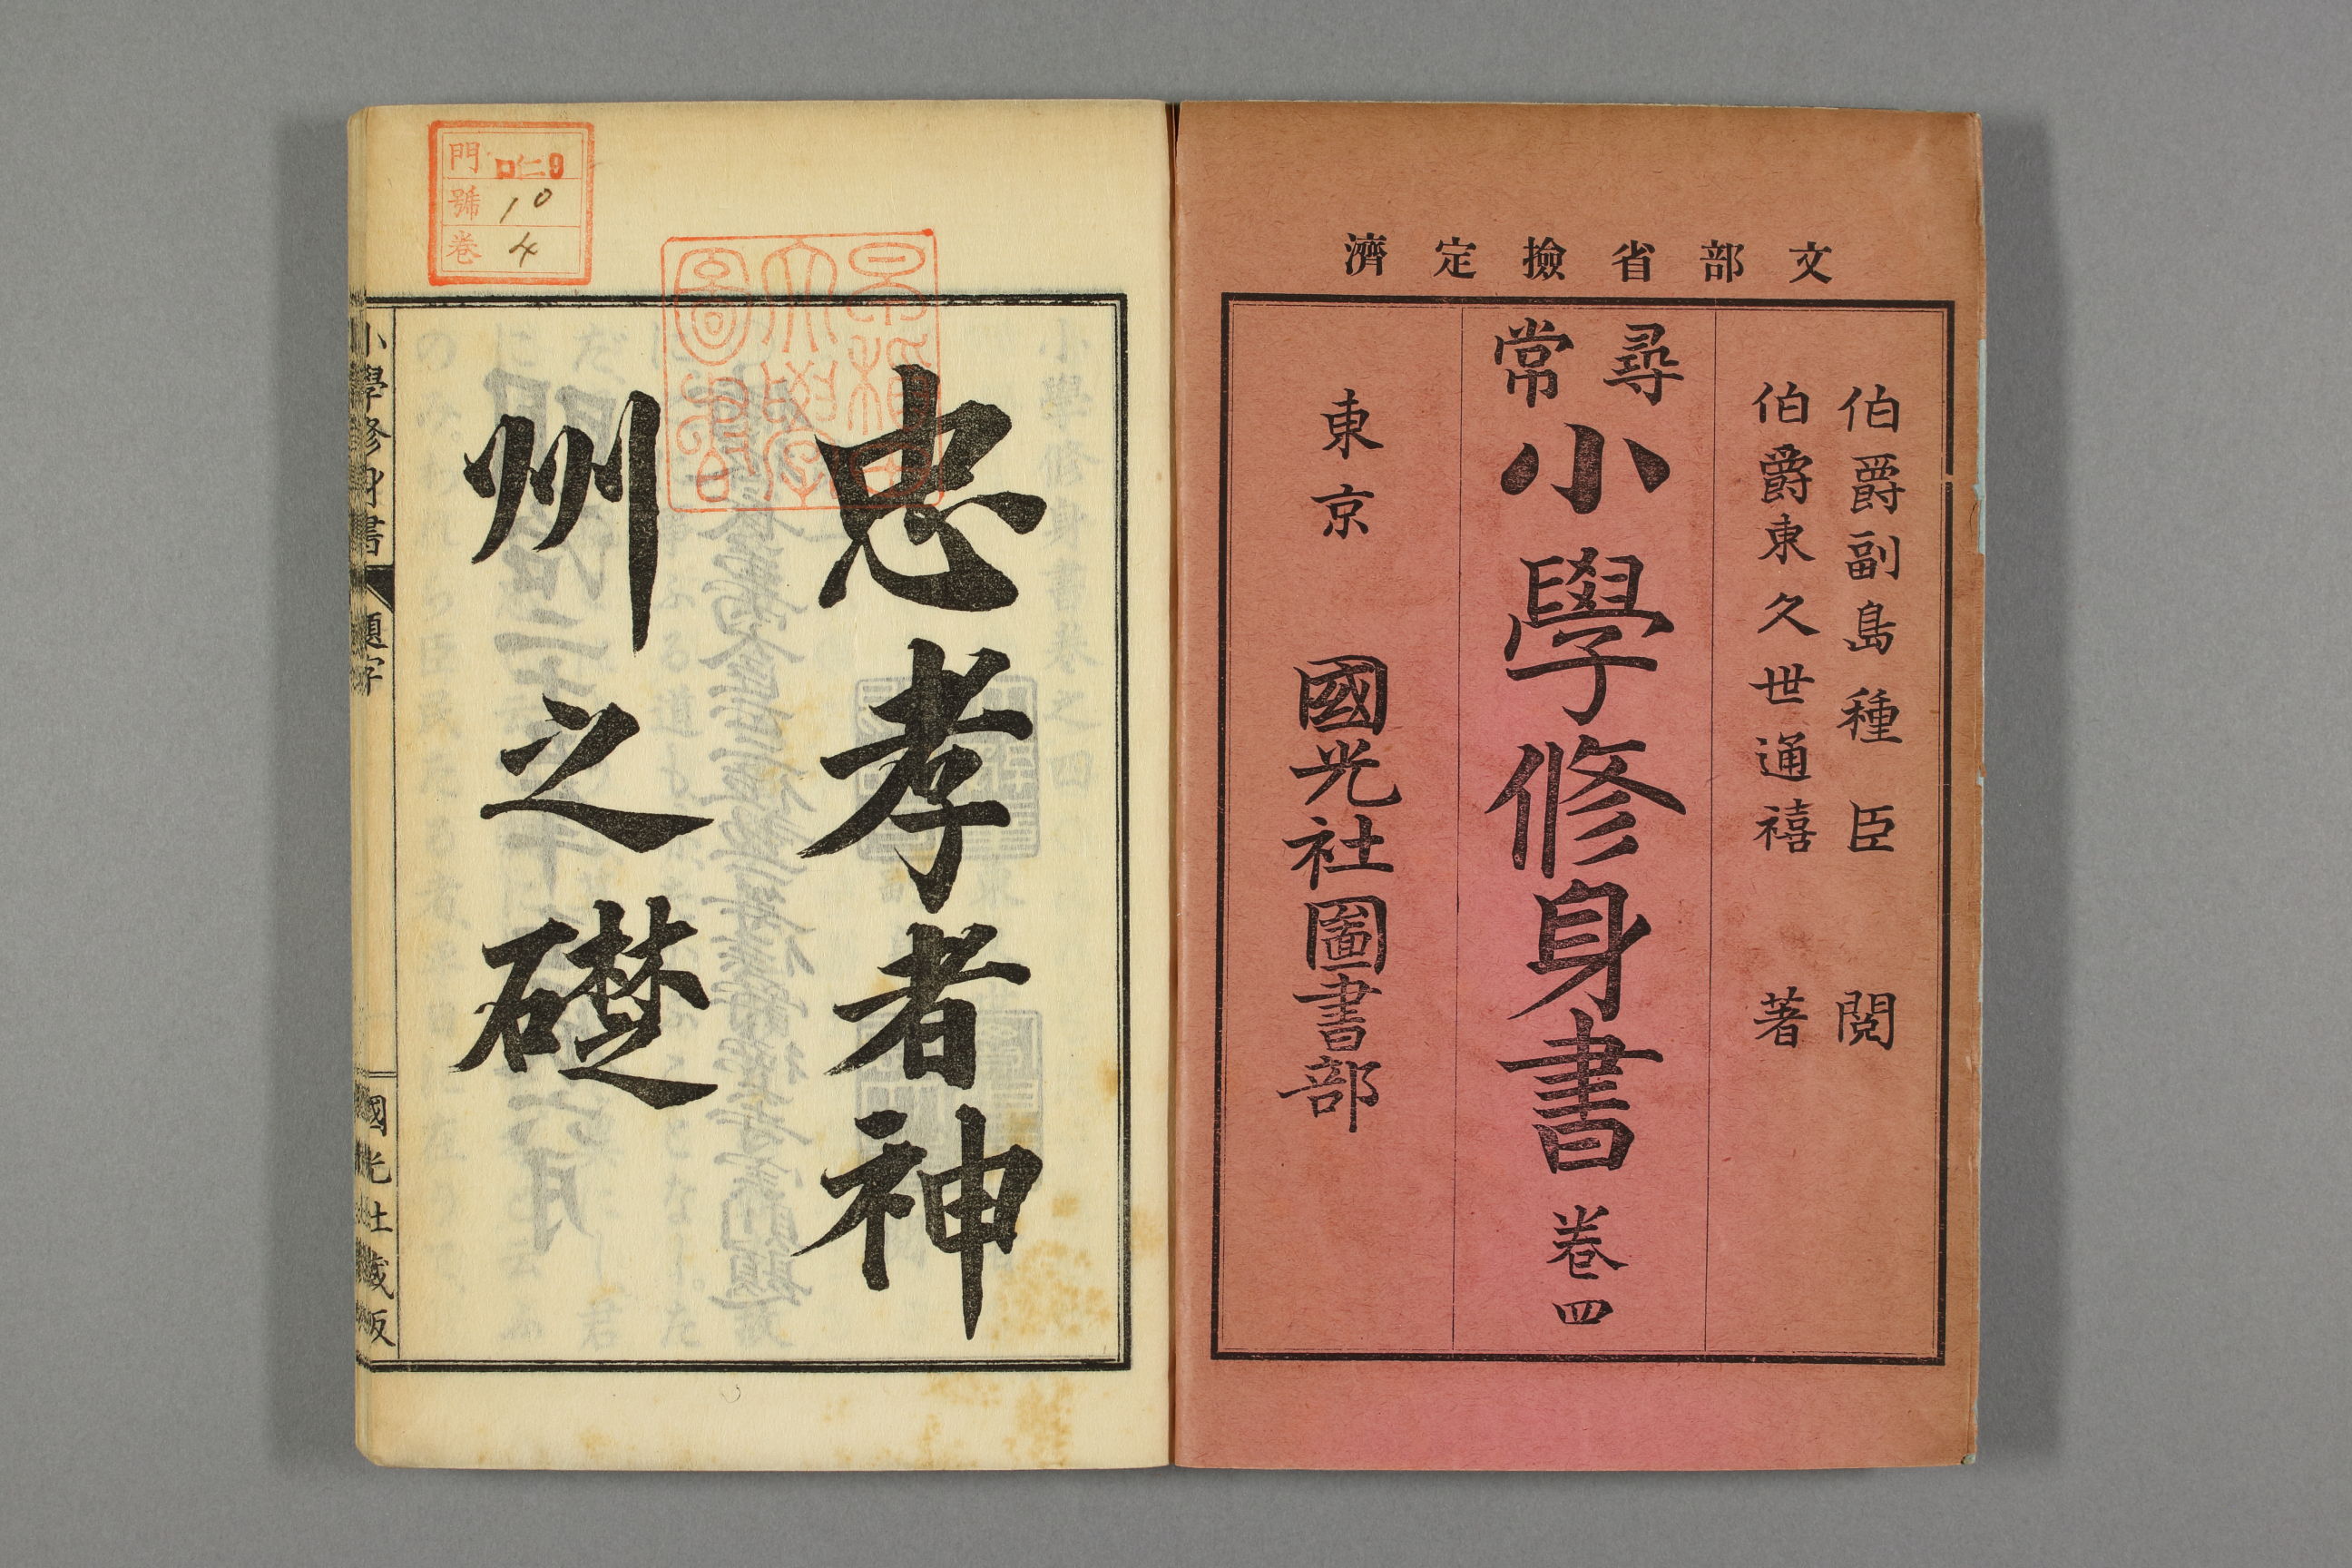 文部省撿定濟
伯爵副島種臣 閱
伯爵東久世通禧 著
尋常
小學修身書 卷四
東京 國光社圖書部
門 口仁9
號 10
卷 4
忠孝者神
州之礎
小學修身書 題字 國光社藏版